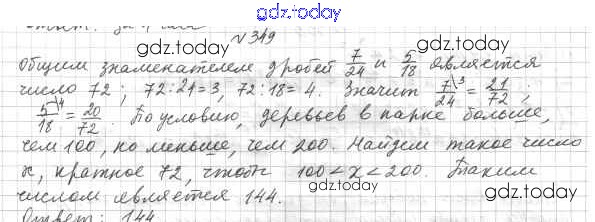 gdz.today
№ 349
gdz.today gdz.today
Общим знаменателем дробей 7/24 и 5/18 является
число 72; 72:24=3, 72:18=4. Значит 7\3/24 = 21/72;
5\4/18 = 20/72. По условию, деревьев в парке больше,
чем 100, но меньше, чем 200. Найдем такое число
x, кратное 72, чтобы 100 < x < 200. Таким
gdz.today gdz.today
числом является 144.
Ответ: 144